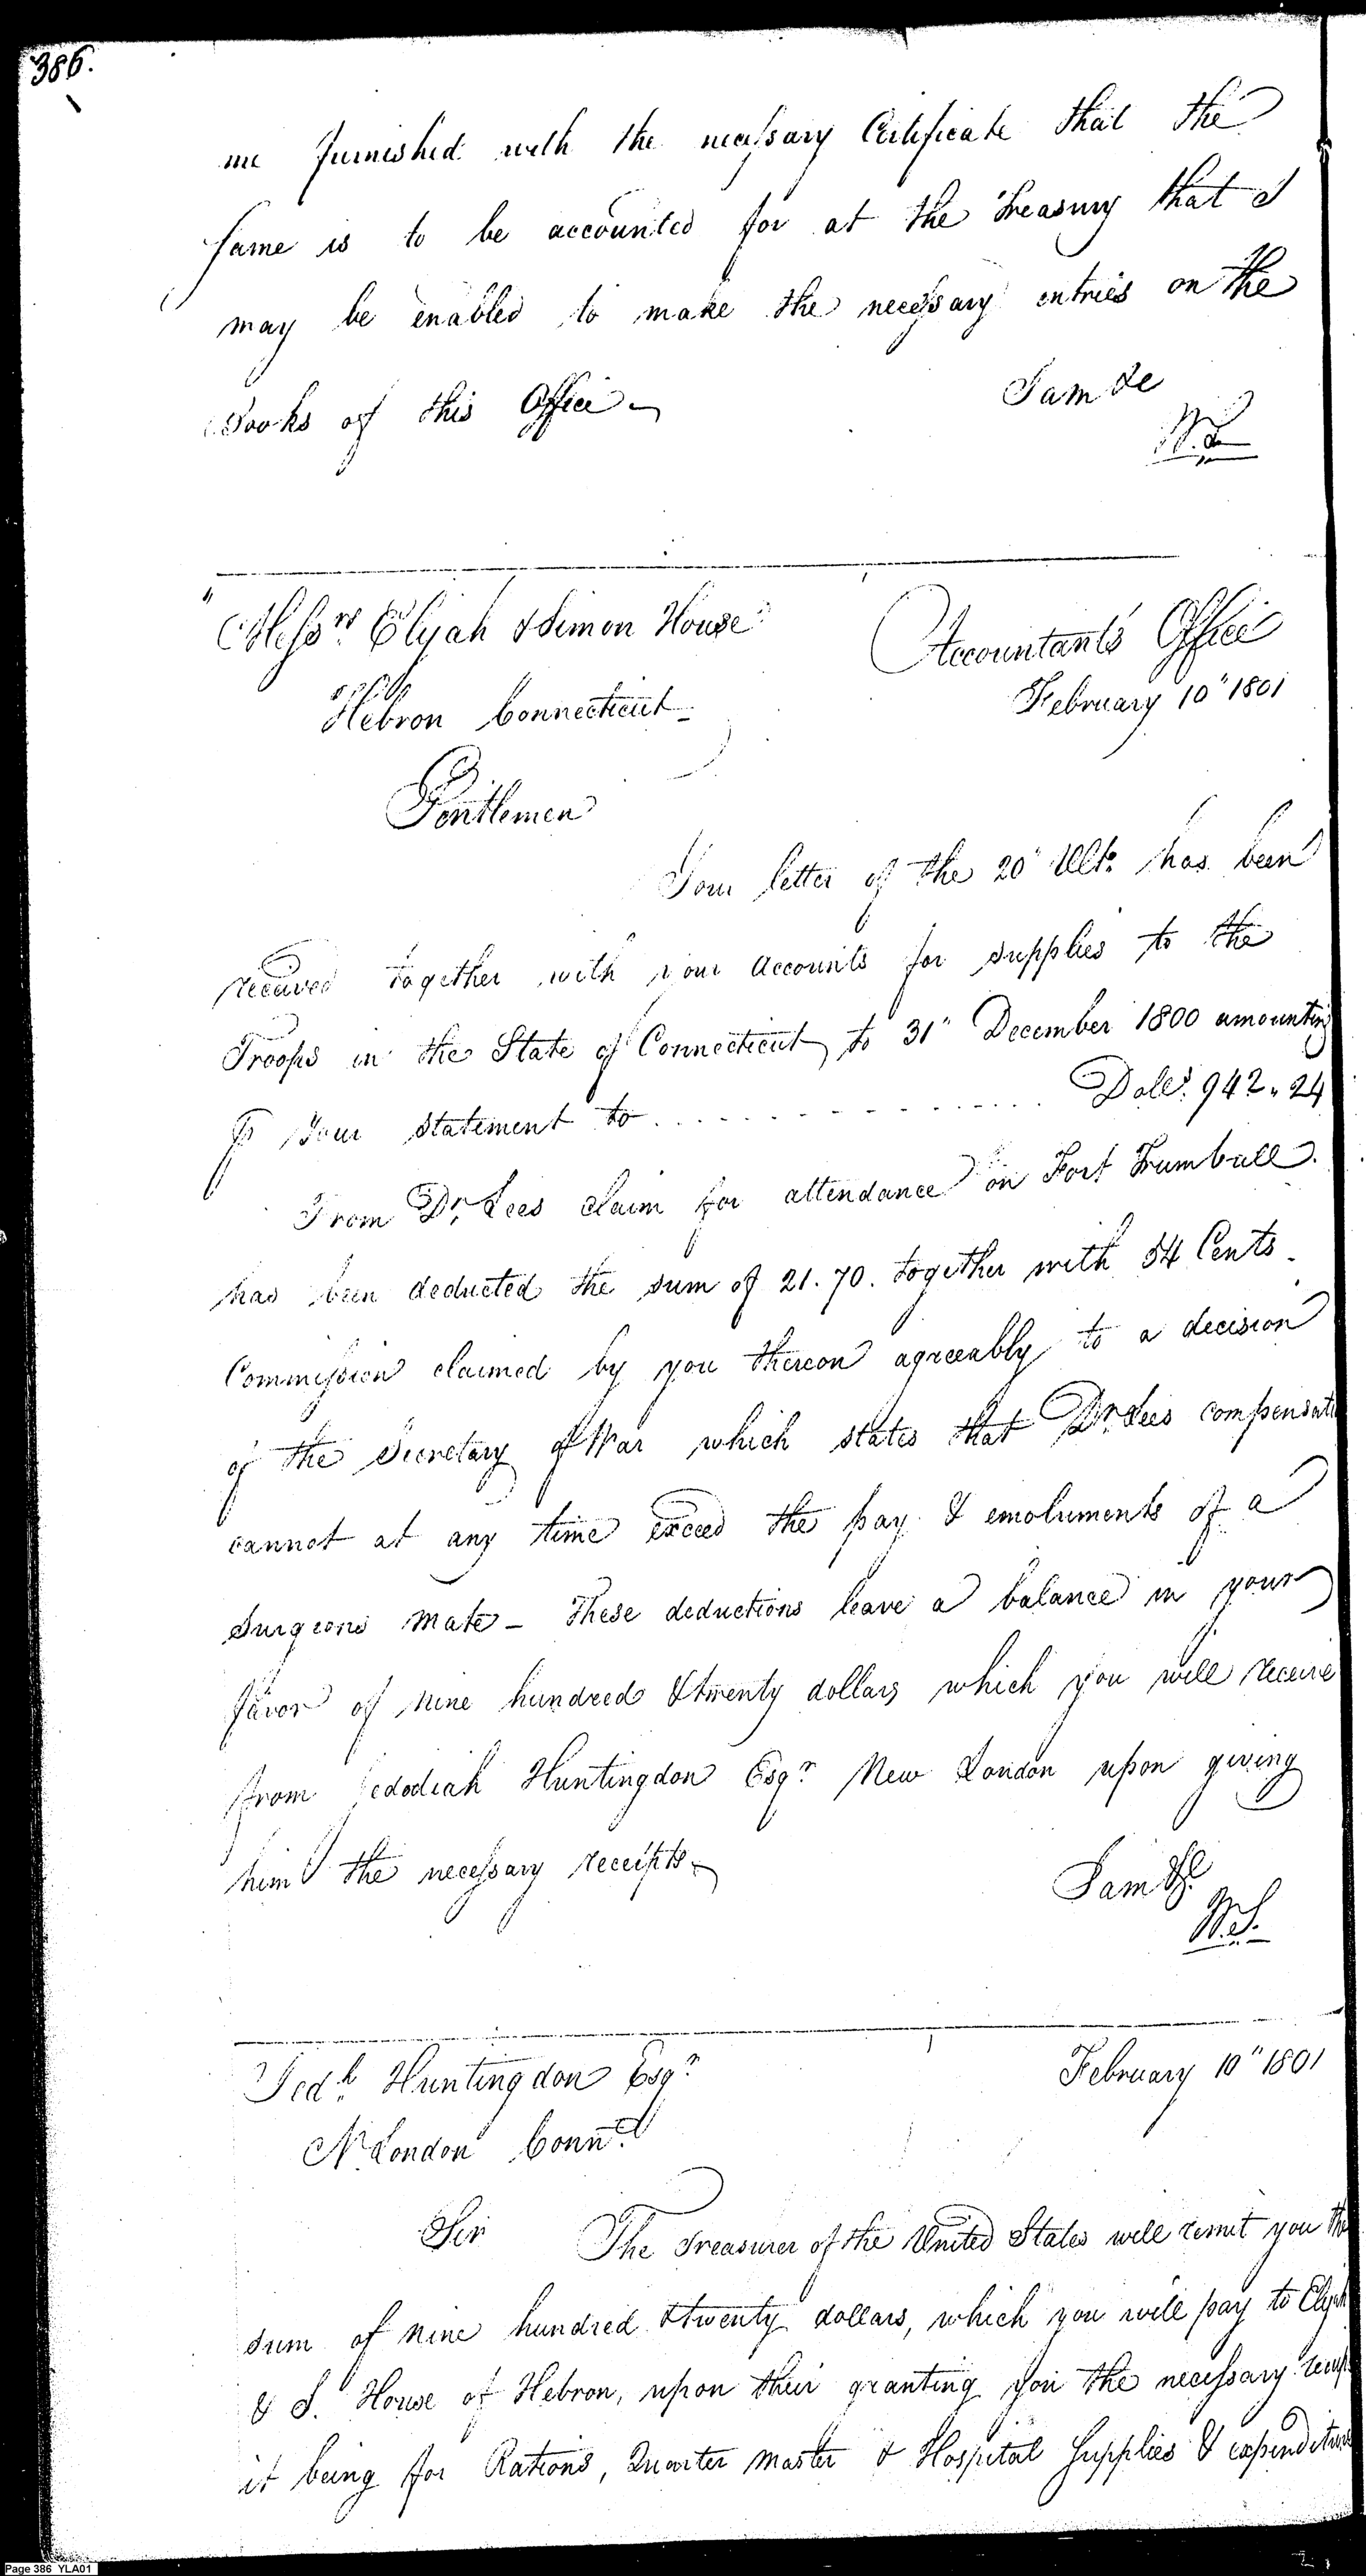 386.
me furnished with the necessary Certificate that the
same is to be accounted for at the Treasury that I
may be enabled to make the necessary entries on the
Books of this Office
I am &c
W. S.
Messrs. Elijah & Simon House
Hebron Connecticut
Accountants Office
February 10" 1801
Gentlemen
Your letter of the 20" Ulto. has been
received together with your accounts for supplies to the
Troops in the State of Connecticut to 31" December 1800 amounting
Pr Your statement to . . . . . . . . . . . . Dolls. 942.24
From Dr. Lees claim for attendance on Fort Trumbull.
has been deducted the sum of 21.70. together with 54 Cents
Commission claimed by you thereon agreeably to a decision
of the Secretary of War which states that Dr. Lees compensati
cannot at any time exceed the pay & emoluments of a
Surgeons Mate - These deductions leave a balance in your
favor of nine hundred & twenty dollars which you will receive
from Jedodiah Huntingdon Esqr. New London upon giving
him the necessary receipts
I am &c
W. S.
Jedh. Huntingdon Esqr.
N. London Connt.
February 10" 1801
Sir The Treasurer of the United States will remit you the
sum of nine hundred & twenty dollars, which you will pay to Elijah
& S. House of Hebron, upon their granting you the necessary receip
it being for Rations, Quarter Master & Hospital Supplies & expenditures
Page 386 YLA01